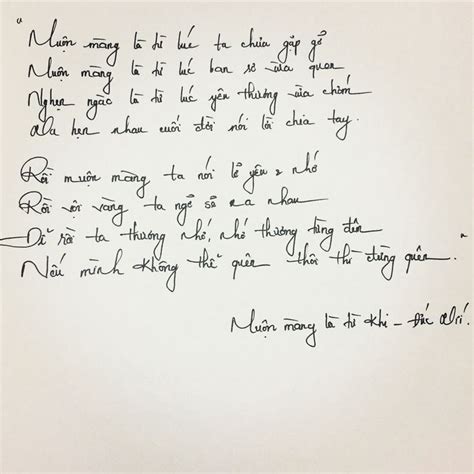 "Muộn màng là từ lúc ta chưa gặp gỡ
Muộn màng là từ lúc ban sơ vừa quen
Nghẹn ngào là từ lúc yêu thương vừa chớm
Đã hẹn nhau cuối đời nói lời chia tay.
Rồi muộn màng ta nói lỡ yêu & nhớ
Rồi vội vàng ta ngỏ số xa nhau
Để rồi ta thương nhớ, nhớ thương từng đêm
Nếu mình không thể quên thôi thì đừng quên."
Muộn màng là từ khi - Đức Trí.